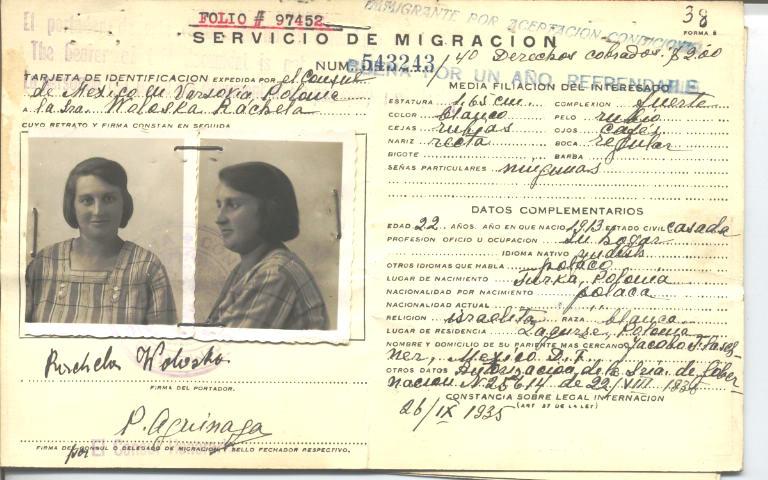 FOLIO # 97452
INMIGRANTE POR ACEPTACION CONDICIONAL
38
FORMA 5
SERVICIO DE MIGRACION
NUM. 543243 /40 Derechos cobrados: $2.00
BUENA POR UN AÑO REFRENDABLE
TARJETA DE IDENTIFICACION EXPEDIDA POR el Consul
de Mexico en Varsovia Polonia
A la Sra. Woloska Rachela
CUYO RETRATO Y FIRMA CONSTAN EN SEGUIDA
Rachela Woloska
FIRMA DEL PORTADOR.
P. Aguinaga
FIRMA DEL CONSUL O DELEGADO DE MIGRACION Y SELLO FECHADOR RESPECTIVO.
por El Consul
MEDIA FILIACION DEL INTERESADO
ESTATURA 1,65 cm. COMPLEXION fuerte
COLOR blanco PELO rubio
CEJAS rubias OJOS cafés
NARIZ recta BOCA regular
BIGOTE BARBA
SEÑAS PARTICULARES ningunas
DATOS COMPLEMENTARIOS
EDAD 22 AÑOS. AÑO EN QUE NACIO 1913 ESTADO CIVIL casada
PROFESION OFICIO U OCUPACION Su hogar
IDIOMA NATIVO yudish
OTROS IDIOMAS QUE HABLA polaco
LUGAR DE NACIMIENTO Polonia
NACIONALIDAD POR NACIMIENTO polaca
NACIONALIDAD ACTUAL
RELIGION israelita RAZA blanca
LUGAR DE RESIDENCIA Polonia
NOMBRE Y DOMICILIO DE SU PARIENTE MAS CERCANO Jacobo
ner, Mexico D. F.
OTROS DATOS Autorizacion de la Sria. de Gober-
nacion N. 25614 de 22/VIII 1935
CONSTANCIA SOBRE LEGAL INTERNACION
(ART 57 DE LA LEY)
26/IX 1935